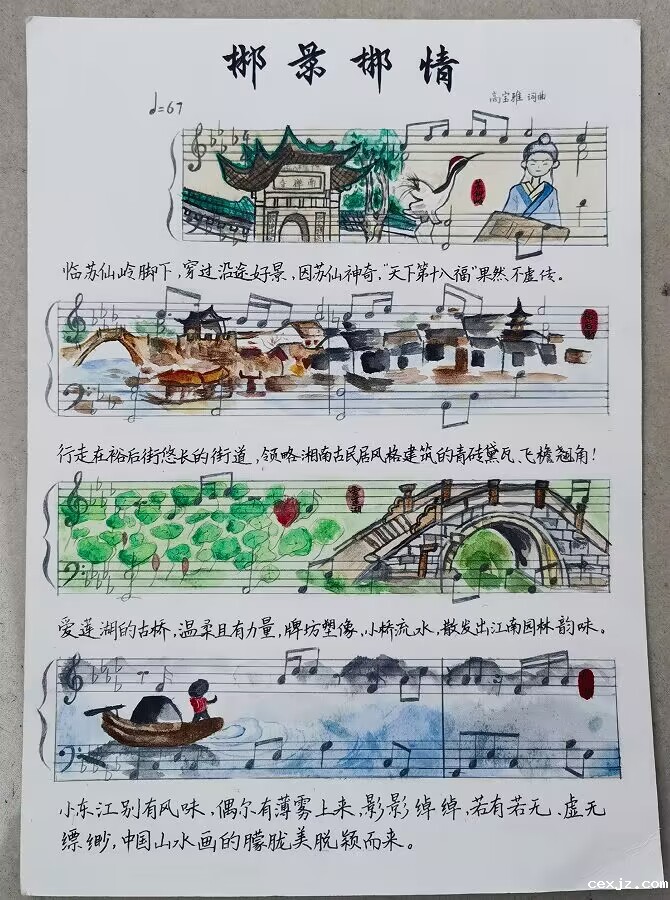 郴景郴情
高宝雅 词曲
♩=67
临苏仙岭脚下,穿过沿途好景,因苏仙神奇,“天下第十八福”果然不虚传。
行走在裕后街悠长的街道,领略湘南古民居风格建筑的青砖黛瓦、飞檐翘角!
爱莲湖的古桥,温柔且有力量,牌坊塑像,小桥流水,散发出江南园林韵味。
小东江别有风味,偶尔有薄雾上来,影影绰绰,若有若无、虚无
缥缈,中国山水画的朦胧美脱颖而来。
cexjz.com